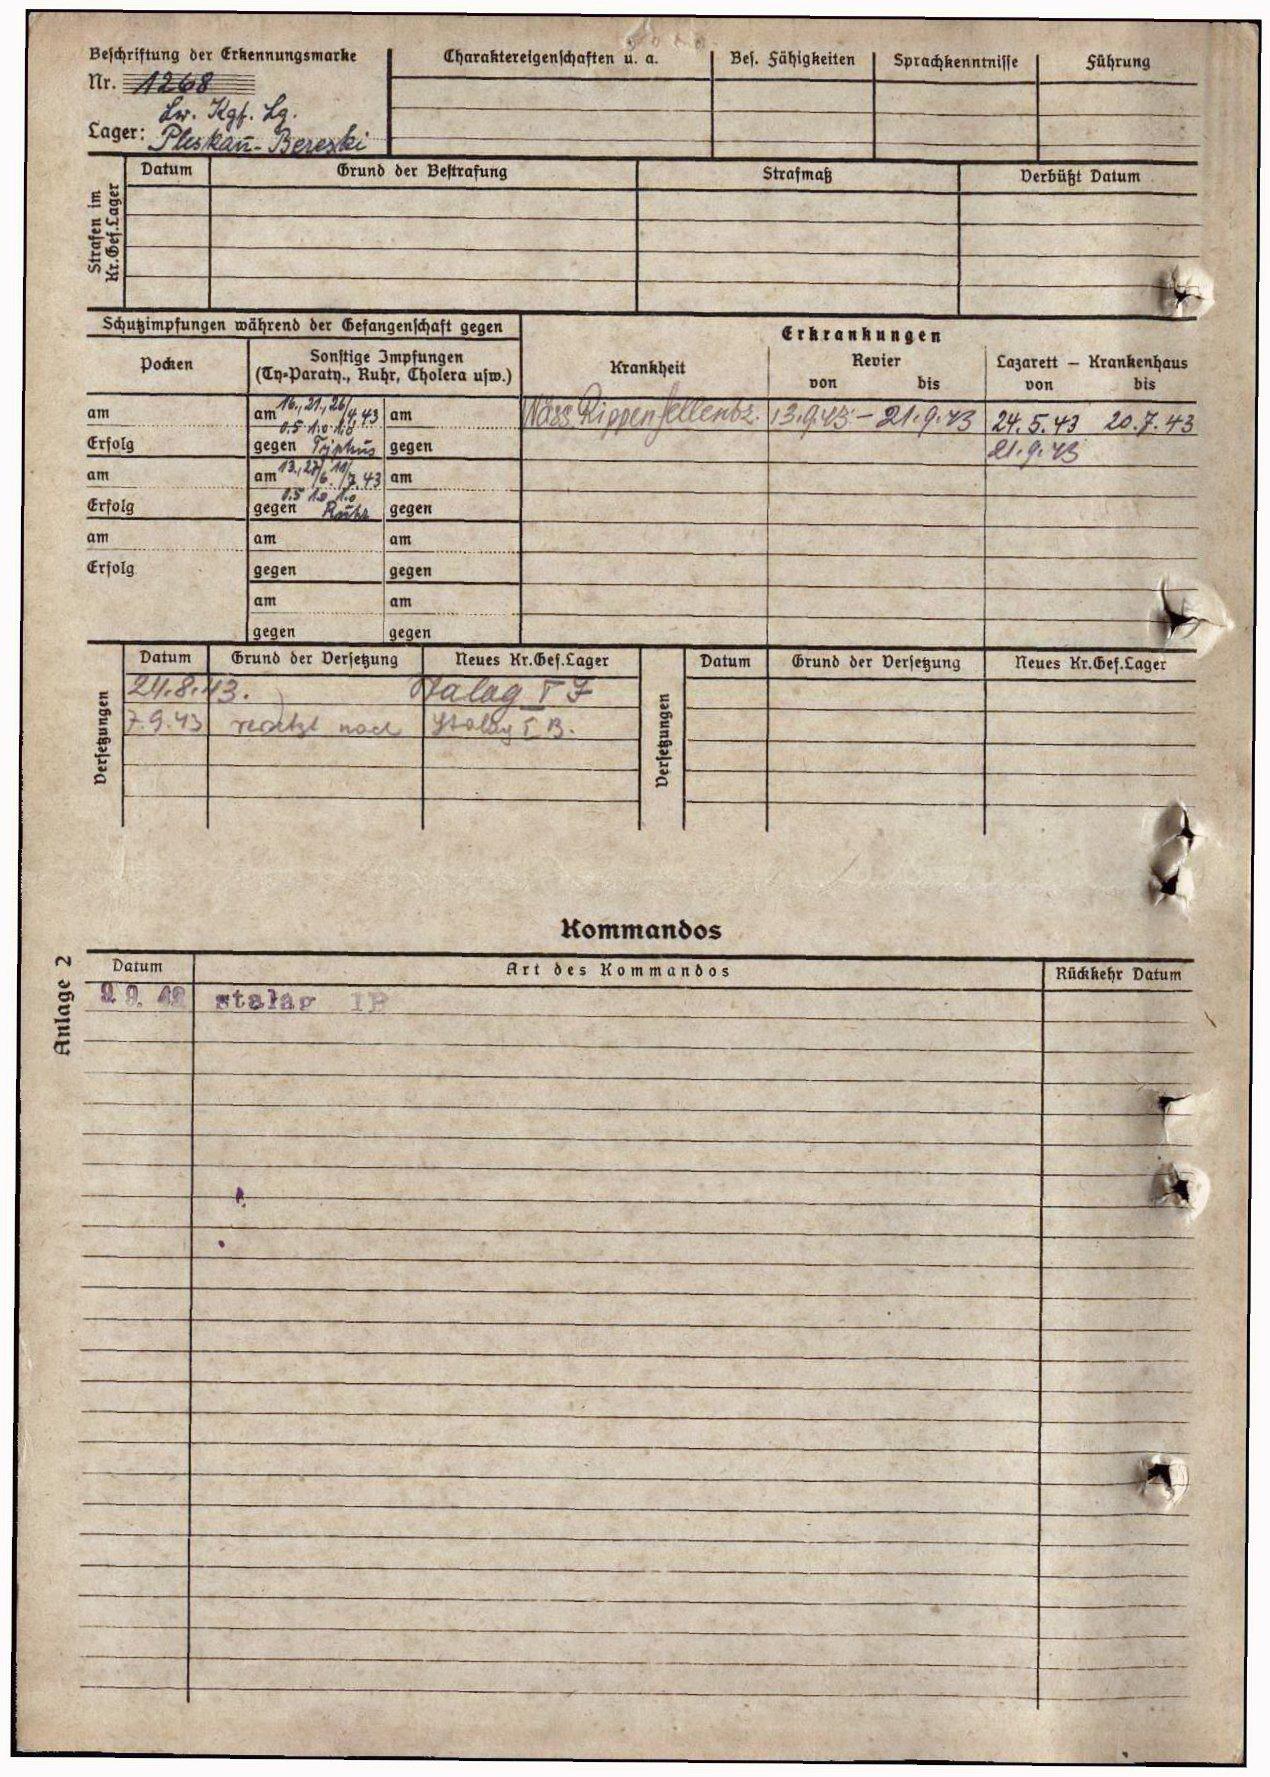 Beschriftung der Erkennungsmarke
Nr. 1268
Lw. Kgf. Lg.
Lager: Pleskau-Bereski
Charaktereigenschaften u. a.
Bes. Fähigkeiten
Sprachkenntnisse
Führung
Strafen im
Kr.Gef.Lager
Datum
Grund der Bestrafung
Strafmaß
Verbüßt Datum
Schutzimpfungen während der Gefangenschaft gegen
Pocken
Sonstige Impfungen
(Ty=Paraty., Ruhr, Cholera usw.)
Erkrankungen
Krankheit
Revier
von bis
Lazarett – Krankenhaus
von bis
am am 16., 21., 26/4.43 am
0.5 1.0 1.0
Erfolg gegen Typhus gegen
am am 13., 27/6. 11/7.43 am
0.5 1.0 1.0
Erfolg gegen Ruhr gegen
am am am
Erfolg gegen gegen
am am
gegen gegen
Näss. Rippenfellentz. 13.9.43 – 21.9.43 24.5.43 20.7.43
21.9.43
Versetzungen
Datum Grund der Versetzung Neues Kr.Gef.Lager
24.8.43. Stalag I F
7.9.43 versetzt nach Stalag I B.
Versetzungen
Datum Grund der Versetzung Neues Kr.Gef.Lager
Kommandos
Anlage 2
Datum Art des Kommandos Rückkehr Datum
9. 43 stalag IB